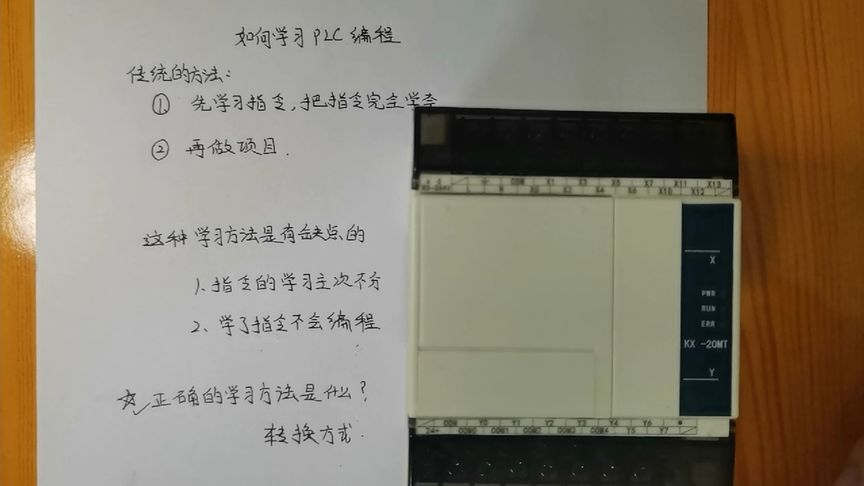 如何学习PLC编程
传统的方法：
① 先学习指令，把指令完全学会
② 再做项目.
这种学习方法是有缺点的
1. 指令的学习主次不分
2、学了指令不会编程
☆ 正确的学习方法是什么？
转换方式.
COM X1 X3 X5 X7 X11 X13
L N X0 X2 X4 X6 X10 X12
X
PWR
RUN
ERR
KX -20MT
Y
COM Y0 Y1 Y2 Y3 Y4 Y6
24+ COM0 COM1 COM2 COM3 COM4 Y5 Y7